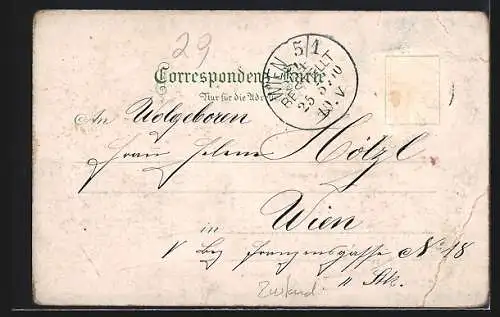 29
Correspondenz-Karte.
Nur für die Adresse
WIEN 5/1
BESTELLT
10. V
An Wolgeboren
Frau Helene Hölzl
in Wien
V Bez Franzensgasse No 18
II Stk.